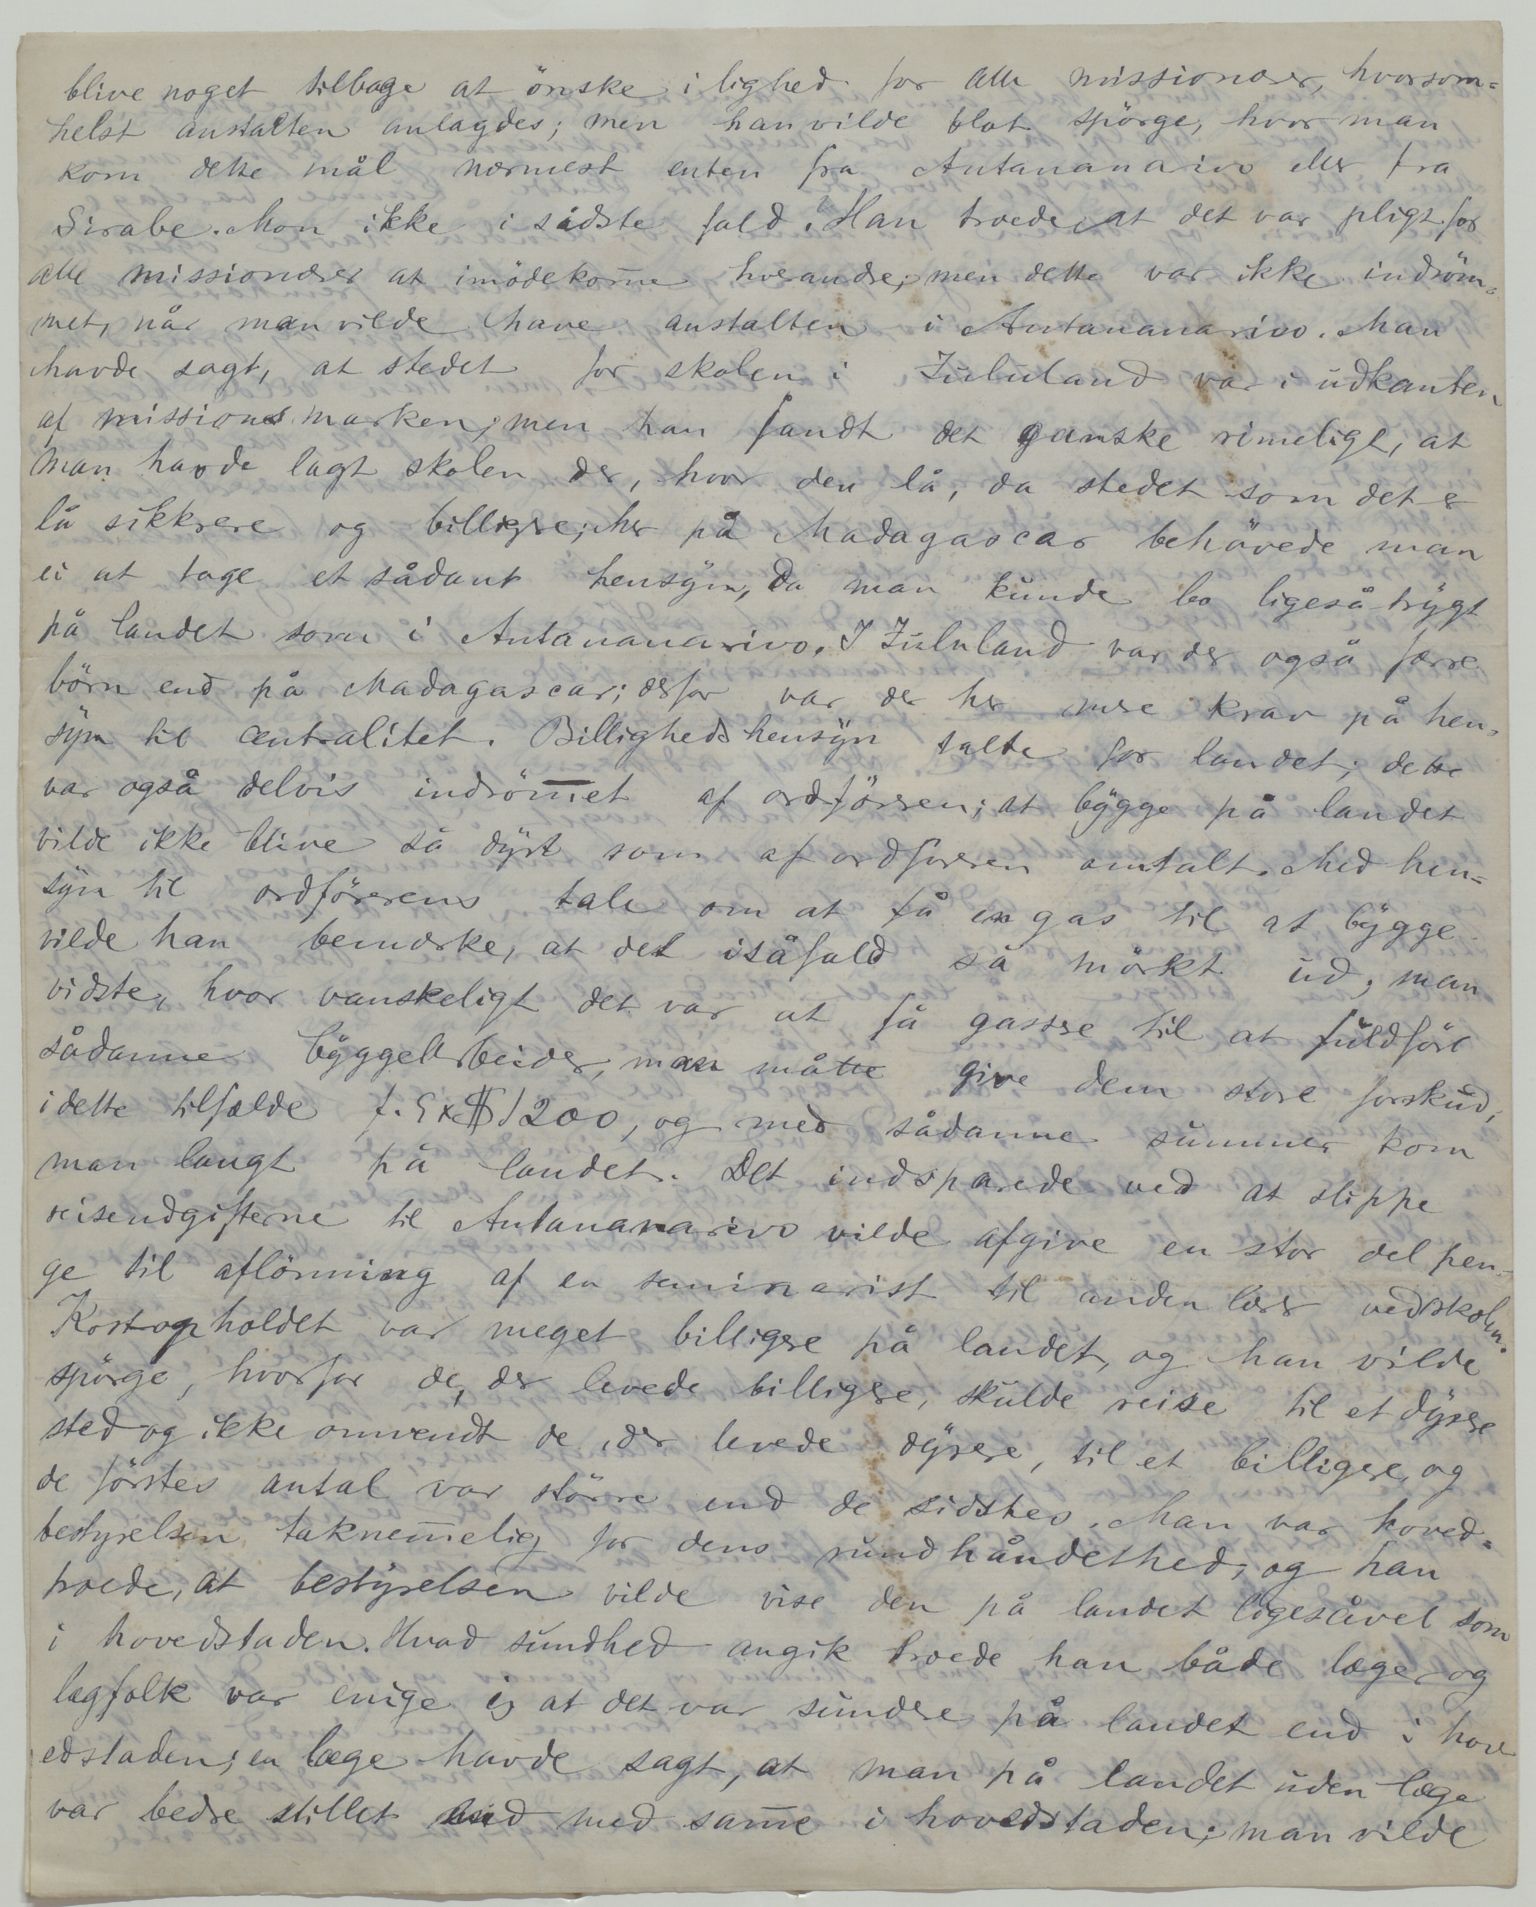 blive noget tilbage at önske i lighed for alle missionærer, hvorsom-
helst anstalten anlagdes; men han vilde blot spörge, hvor man
kom dette mål nærmest enten fra Antananarivo eller fra
Sirabe. Mon ikke i sidste fald? Han troede, at det var pligt for
alle missionærer at imödekom̅e hverandre; men dette var ikke indröm-
met, når man vilde have anstalten i Antananarivo. Man
havde sagt, at stedet for skolen i Zululand var i udkanten
af missionsmarken; men han fandt det ganske rimeligt, at
man havde lagt skolen der, hvor den lå, da stedet som det er
lå sikkrere og billigere; her på Madagascar behövede man
ei at tage et sådant hensÿn, Da man kunde bo ligeså trÿgt
på landet som i Antananarivo. I Zululand var der også færre
börn end på Madagascar; derfor var der her mere krav på hen-
sÿn til centralitet. Billighedshensÿn talte for landet; dette
var også delvis indröm̅et af ordföreren; at bÿgge på landet
vilde ikke blive så dÿrt som af ordföreren omtalt. Med hen-
sÿn til ordförerens tale om at få en gas til at bÿgge
vilde han bemærke, at det isåfald så mörkt ud; man
vidste, hvor vanskeligt det var at få gassere til at fuldföre
sådanne bÿggearbeider, man måtte give dem store forskud,
i dette tilfælde f. Ex $ 1200, og med sådanne summer kom
man langt på landet. Det indsparede ved at slippe
reiseudgifterne til Antananarivo vilde afgive en stor del pen-
ge til aflönning af en seminarist til anden lærer ved skolen.
Kostopholdet var meget billigere på landet, og han vilde
spörge, hvorfor de, der levede billigere, skulde reise til et dÿrere
sted og ikke omvendt de, der levede dÿrere, til et billigere, og
de förstes antal var större end de sidstes. Man var hoved-
bestyrelsen taknem̅elig for dens rundhåndethed, og han
troede, at bestÿrelsen vilde vise den på landet ligesåvel som
i hovedstaden. Hvad sundhed angik troede han både læger og
lægfolk var enige i, at det var sundere på landet end i hov
edstaden; en læge havde sagt, at man på landet uden læge
var bedre stillet end med sam̅e i hovedstaden; man vilde